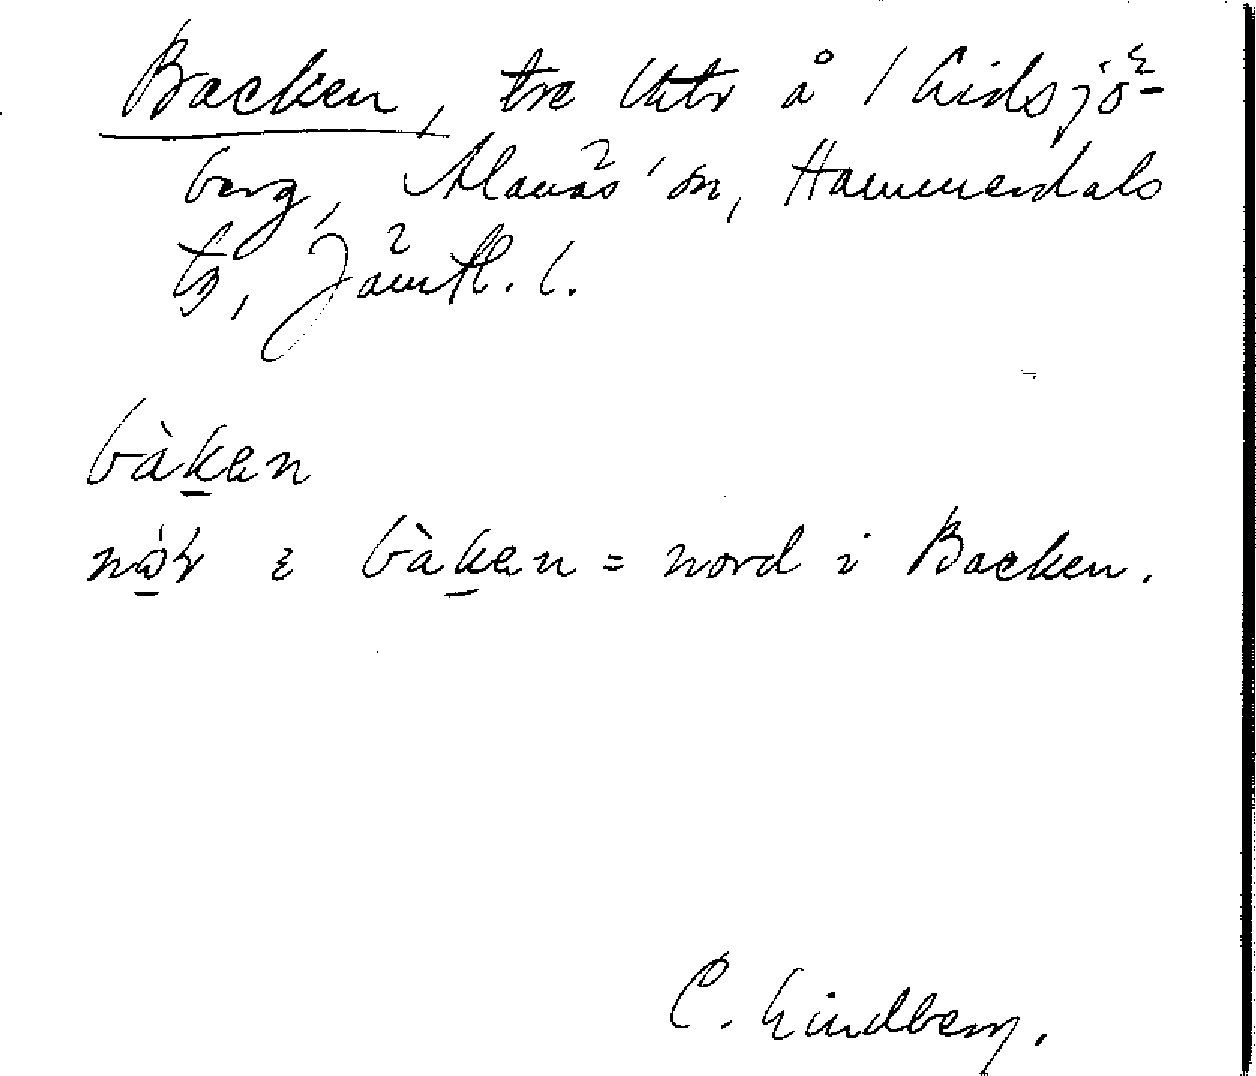 Backen, tre lhtr å 1 Lidsjö-
berg, Alanäs sn, Hammerdals
tg, Jämtl. l.
bàkan
nør i bàkan = nord i Backen.
C. Lindberg.